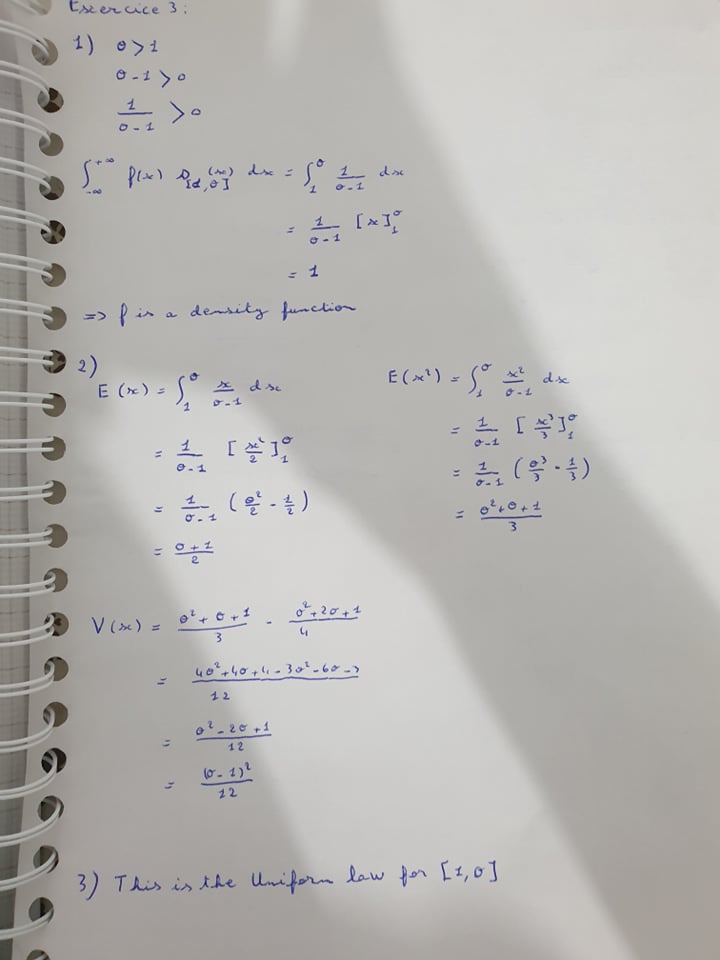 Exercice 3:
1) θ > 1
θ - 1 > 0
1/(θ - 1) > 0
∫_{-∞}^{+∞} f(x) 𝟙_{[1,θ]}(x) dx = ∫_1^θ 1/(θ - 1) dx
= 1/(θ - 1) [x]_1^θ
= 1
=> f is a density function
2)
E(x) = ∫_1^θ x/(θ - 1) dx
= 1/(θ - 1) [x²/2]_1^θ
= 1/(θ - 1) (θ²/2 - 1/2)
= (θ + 1)/2
E(x²) = ∫_1^θ x²/(θ - 1) dx
= 1/(θ - 1) [x³/3]_1^θ
= 1/(θ - 1) (θ³/3 - 1/3)
= (θ² + θ + 1)/3
V(x) = (θ² + θ + 1)/3 - (θ² + 2θ + 1)/4
= (4θ² + 4θ + 4 - 3θ² - 6θ - 3)/12
= (θ² - 2θ + 1)/12
= (θ - 1)²/12
3) This is the Uniform law for [1,θ]